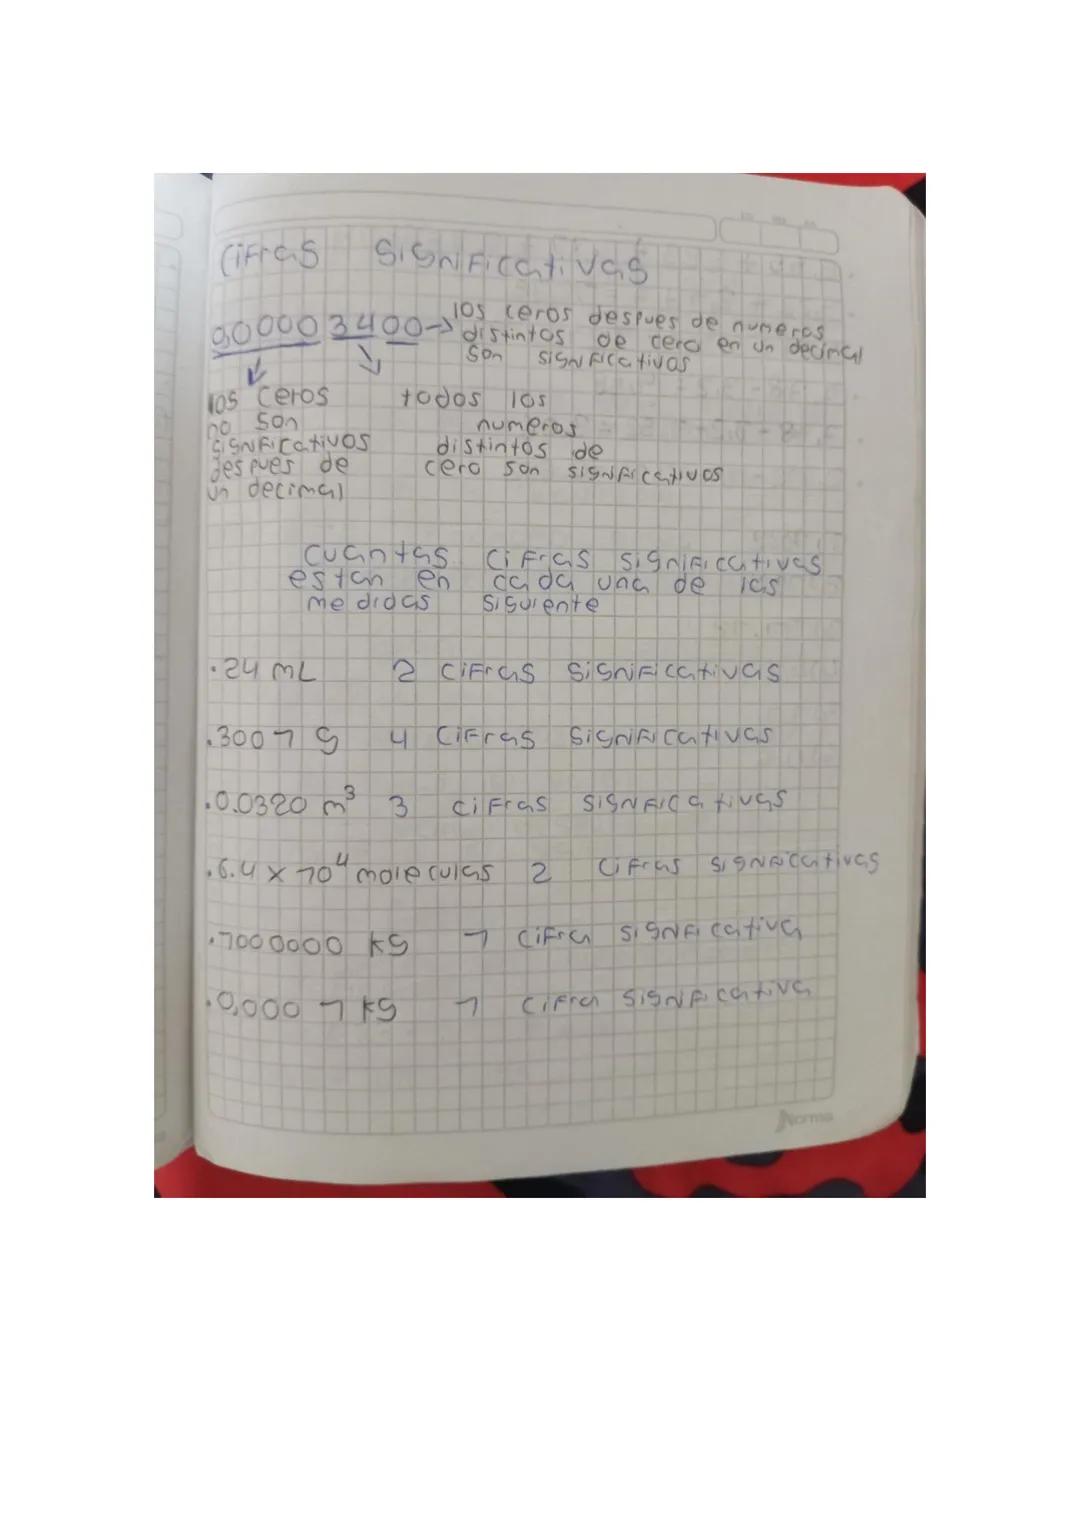 Cifras Significativas
0,00003400→ los ceros despues de numeros
distintos de cero en un decimal
son significativos
los ceros
no son
significativos
despues de
un decimal
todos los
numeros
distintos de
cero son significativos
cuantas cifras significativas
estan en cada una de las
medidas siguiente
.24 mL 2 cifras significativas
.3001 g 4 cifras significativas
.0.0320 m³ 3 cifras significativas
.6.4 x 10⁴ moleculas 2 cifras significativas
.1000000 kg 1 cifra significativa
.0,000 1 kg 1 cifra significativa
Norma